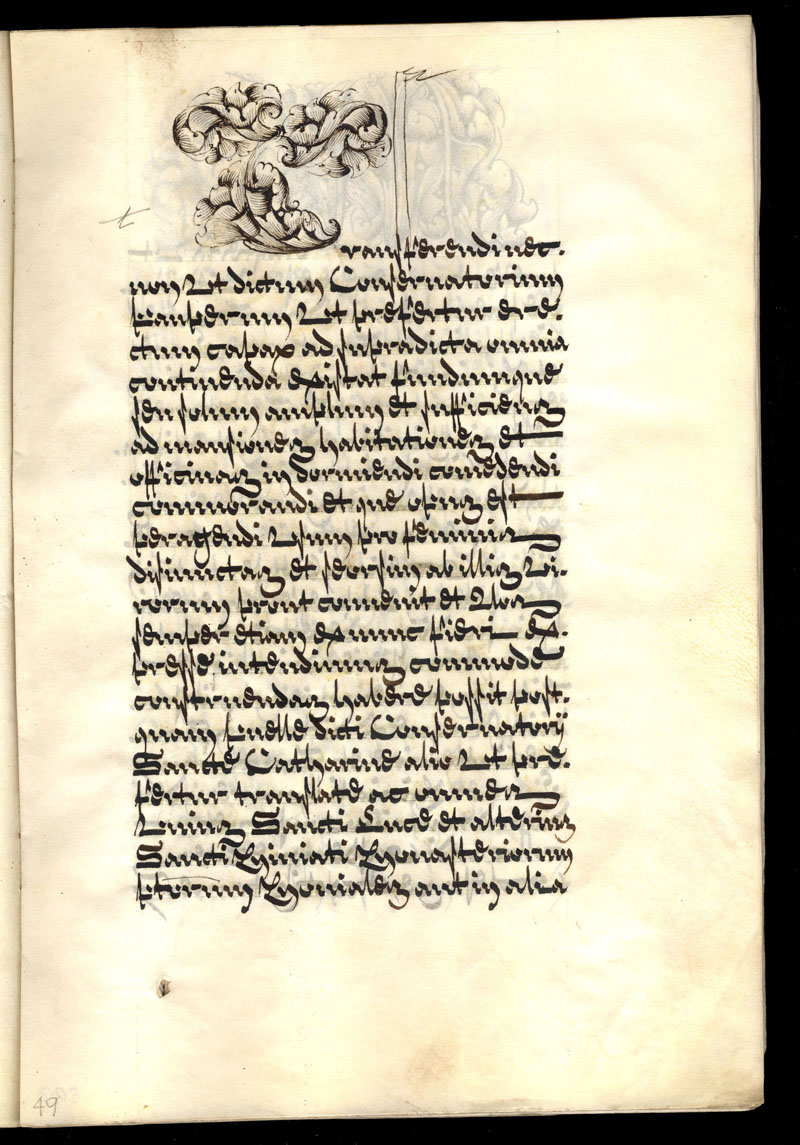 Transferendi nec.
non Ut dictum Conservatorium
pauperum Ut prefertur ere.
ctum capax ad supradicta omnia
continenda existat fundumque
seu solum amplum et sufficiens
ad mansiones habitationes et
officinas in dormiendi comedendi
commorandi et que opus est
peragendi Usum pro feminis
disiunctas et seorsim ab illis Vi.
rorum prout convenit et Nos
semper etiam ex nunc fieri ex.
presse intendimus commode
construendas habere possit post.
quam puelle dicti Conservatorij
Sancte Catharine alio Ut pre.
fertur translate ac omnes
Unius Sancti Luce et alterius
Sancti Miniati Monasteriorum
ptorum Moniales aut in alia
49